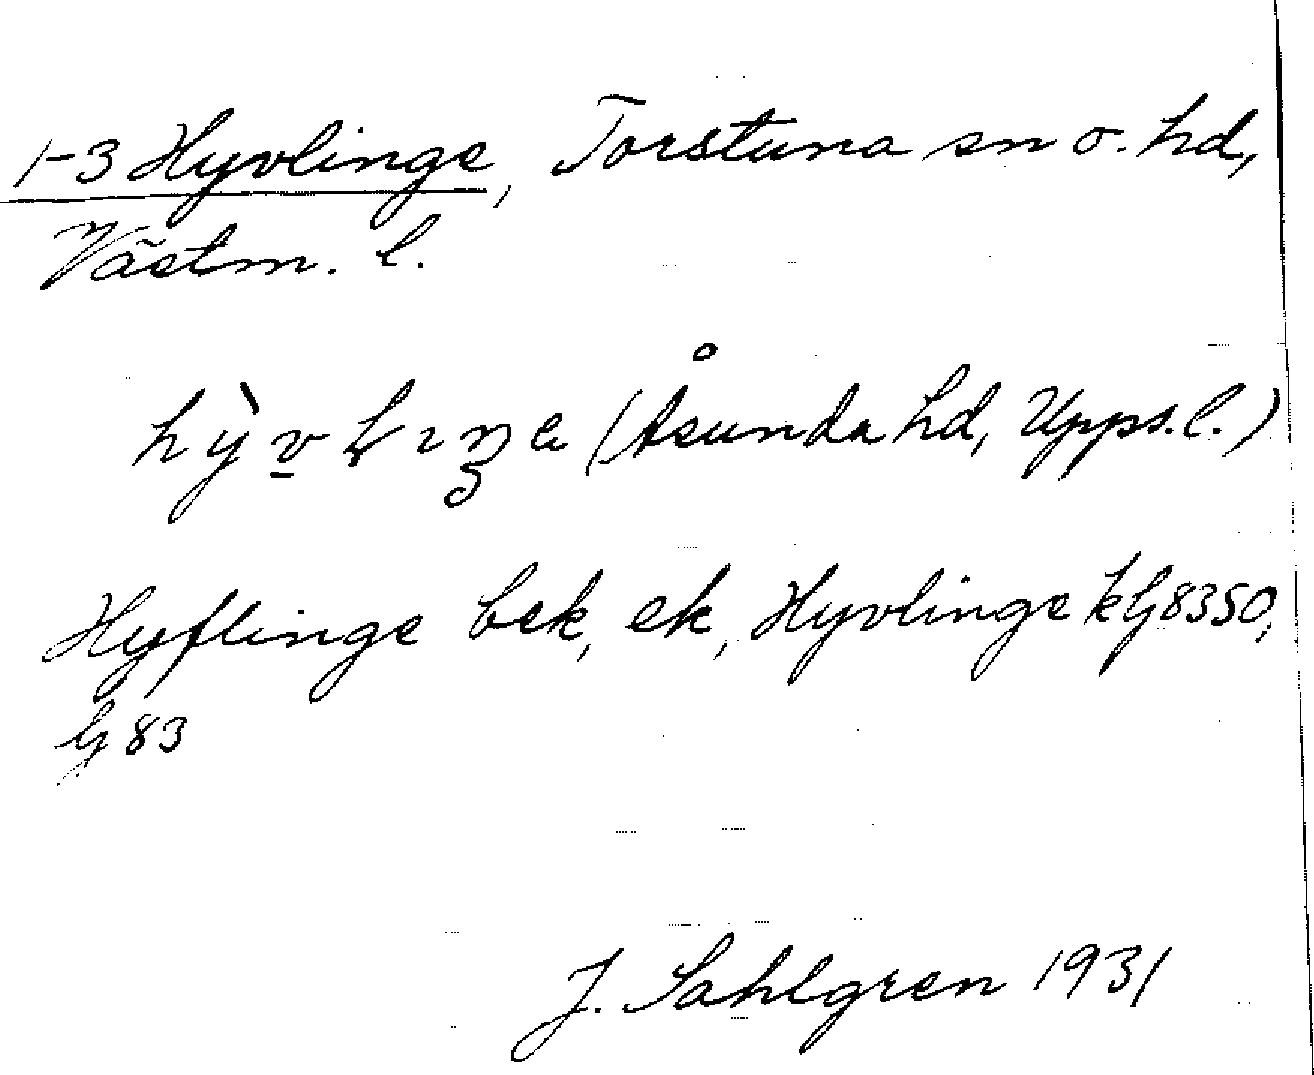 1-3 Hyvlinge, Torstuna sn o. hd,
Västm. l.
(Åsunda hd, Upps. l.)
Hyflinge bek, ek, Hyvlinge kG 8350,
G 83
J. Sahlgren 1931